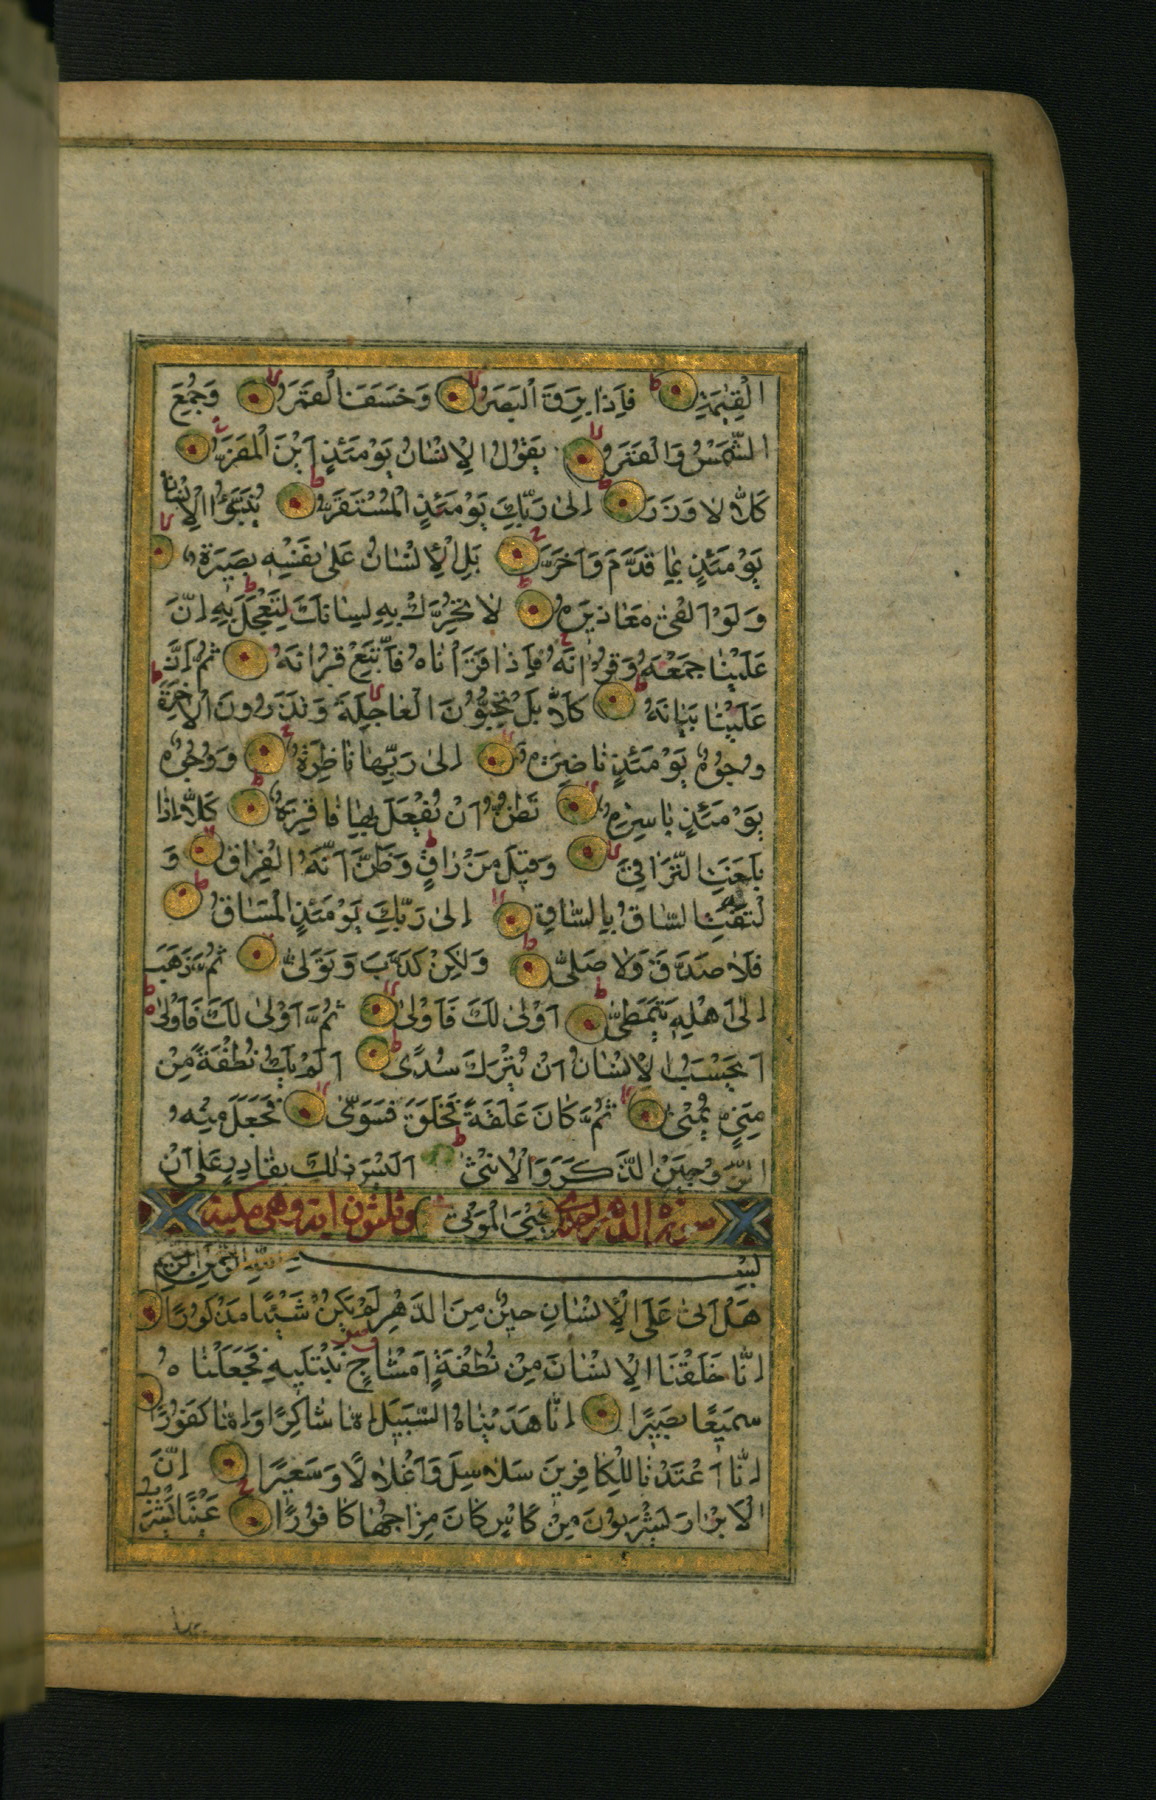 الْقِيٰمَةِ ط فَاِذَا بَرِقَ الْبَصَرُ لا وَخَسَفَ الْقَمَرُ لا وَجُمِعَ
الشَّمْسُ وَالْقَمَرُ لا يَقُولُ الْاِنْسَانُ يَوْمَئِذٍ اَيْنَ الْمَفَرُّ ج
كَلَّا لَا وَزَرَ ط اِلٰى رَبِّكَ يَوْمَئِذٍ الْمُسْتَقَرُّ ط يُنَبَّؤُا الْاِنْسَانُ
يَوْمَئِذٍ بِمَا قَدَّمَ وَاَخَّرَ ط بَلِ الْاِنْسَانُ عَلٰى نَفْسِهٖ بَصِيرَةٌ لا
وَلَوْ اَلْقٰى مَعَاذِيرَهُ ط لَا تُحَرِّكْ بِهِ لِسَانَكَ لِتَعْجَلَ بِهِ ط اِنَّ
عَلَيْنَا جَمْعَهُ وَقُرْاٰنَهُ ج فَاِذَا قَرَأْنَاهُ فَاتَّبِعْ قُرْاٰنَهُ ثُمَّ اِنَّ
عَلَيْنَا بَيَانَهُ ط كَلَّا بَلْ تُحِبُّونَ الْعَاجِلَةَ لا وَتَذَرُونَ الْاٰخِرَةَ ط
وُجُوهٌ يَوْمَئِذٍ نَاضِرَةٌ لا اِلٰى رَبِّهَا نَاظِرَةٌ ج وَوُجُوهٌ
يَوْمَئِذٍ بَاسِرَةٌ لا تَظُنُّ اَنْ يُفْعَلَ بِهَا فَاقِرَةٌ ط كَلَّا اِذَا
بَلَغَتِ التَّرَاقِيَ لا وَقِيلَ مَنْ رَاقٍ وَظَنَّ اَنَّهُ الْفِرَاقُ لا وَ
الْتَفَّتِ السَّاقُ بِالسَّاقِ لا اِلٰى رَبِّكَ يَوْمَئِذٍ الْمَسَاقُ ط
فَلَا صَدَّقَ وَلَا صَلّٰى لا وَلٰكِنْ كَذَّبَ وَتَوَلّٰى لا ثُمَّ ذَهَبَ
اِلٰى اَهْلِهٖ يَتَمَطّٰى ط اَوْلٰى لَكَ فَاَوْلٰى لا ثُمَّ اَوْلٰى لَكَ فَاَوْلٰى ط
اَيَحْسَبُ الْاِنْسَانُ اَنْ يُتْرَكَ سُدًى ط اَلَمْ يَكُ نُطْفَةً مِنْ
مَنِيٍّ يُمْنٰى لا ثُمَّ كَانَ عَلَقَةً فَخَلَقَ فَسَوّٰى لا فَجَعَلَ مِنْهُ
الزَّوْجَيْنِ الذَّكَرَ وَالْاُنْثٰى ط اَلَيْسَ ذٰلِكَ بِقَادِرٍ عَلٰى اَنْ
يُحْيِيَ الْمَوْتٰى
سورة الدهر احدى وثلثون اية وهى مكية
بِسْمِ اللّٰهِ الرَّحْمٰنِ الرَّحِيمِ
هَلْ اَتٰى عَلَى الْاِنْسَانِ حِينٌ مِنَ الدَّهْرِ لَمْ يَكُنْ شَيْئًا مَذْكُورًا
اِنَّا خَلَقْنَا الْاِنْسَانَ مِنْ نُطْفَةٍ اَمْشَاجٍ نَبْتَلِيهِ فَجَعَلْنَاهُ
سَمِيعًا بَصِيرًا اِنَّا هَدَيْنَاهُ السَّبِيلَ اِمَّا شَاكِرًا وَاِمَّا كَفُورًا
اِنَّا اَعْتَدْنَا لِلْكَافِرِينَ سَلَاسِلَ وَاَغْلَالًا وَسَعِيرًا اِنَّ
الْاَبْرَارَ يَشْرَبُونَ مِنْ كَاْسٍ كَانَ مِزَاجُهَا كَافُورًا ج عَيْنًا يَشْرَبُ